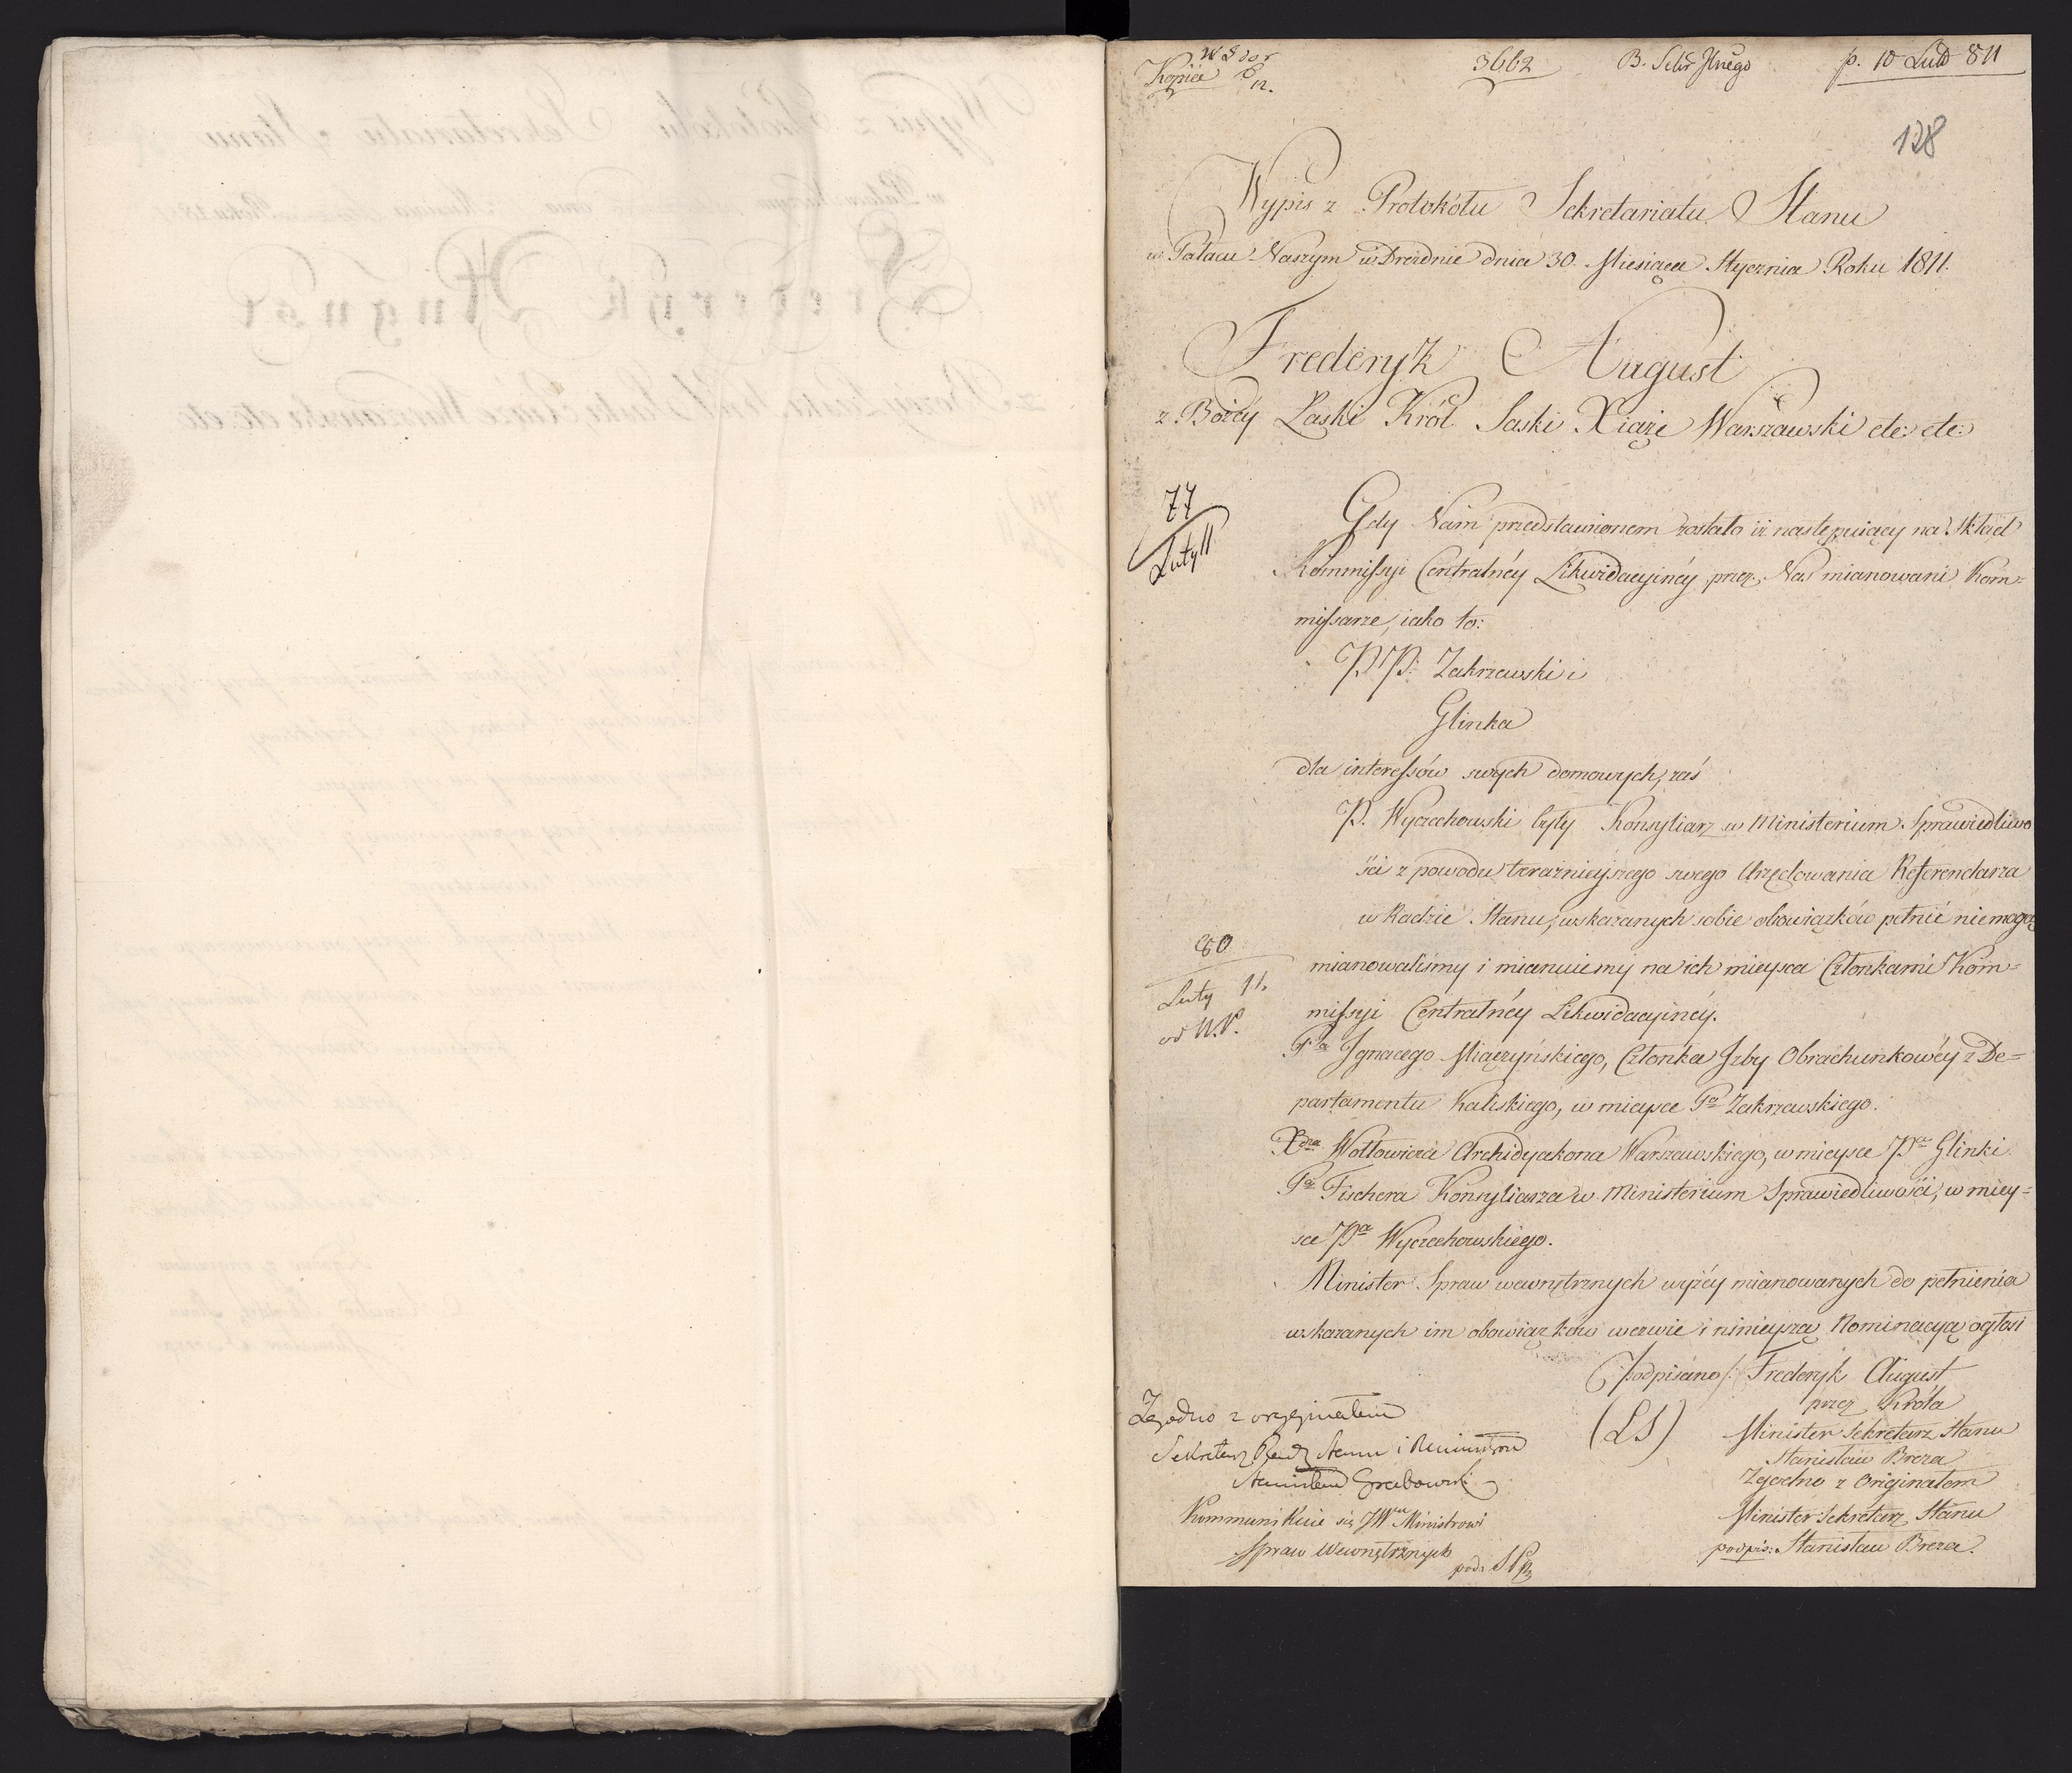 Kopiee
3662
p. 10 Lut 811
128
Wypis z Protokółu Sekretariatu Stanu
w Pałacu Naszym w Dreźnie dnia 30. Miesiąca Stycznia Roku 1811.
Frederyk August
z Bożéy Łaski Król Saski Xiąże Warszawski etc: etc:
77
Luty 11
Gdy Nam przedstawionem zostało iż następuiący na Skład
Kommissyi Centralnéy Likwidacyinéy przez Nas mianowani Kom=
missarze, iako to:
P.P. Zakrzewski i
Glinka
dla interessów swych domowych, zaś
P. Wyczechowski były Konsyliarz w Ministerium Sprawiedliwo
ści z powodu teraźnieyszego swego Urzędowania Referendarza
w Radzie Stanu, wskazanych sobie obowiązków pełnić niemogą
80
Luty 11.
od N.P.
mianowaliśmy i mianuiemy na ich mieysca Członkami Kom=
missyi Centralnéy Likwidacyinéy.
Pa Ignacego Miączyńskiego, Członka Izby Obrachunkowéy z De=
partamentu Kaliskiego, w mieysce Pa Zakrzewskiego.
Xdza Wołłowicza Archidyakona Warszawskiego, w mieysce Pa Glinki.
Pa Fischera Konsyliarza w Ministerium Sprawiedliwości, w miey=
sce Pa Wyczechowskiego.
Minister Spraw wewnętrznych wyżéy mianowanych do pełnienia
wskazanych im obowiązków wezwie i ninieyszą Nominacyą ogłosi
(podpisano/: Frederyk August
przez Króla
(LS) Minister Sekretarz Stanu
Stanisław Breza
Zgodno z Originałem
Minister Sekretarz Stanu
podpis: Stanisław Breza.
Zgodno z oryginałem
Sekretarz Rady Stanu i Ministrów
Stanisław Grabowski
Kommunikuie się JWmu Ministrowi
Spraw Wewnętrznych